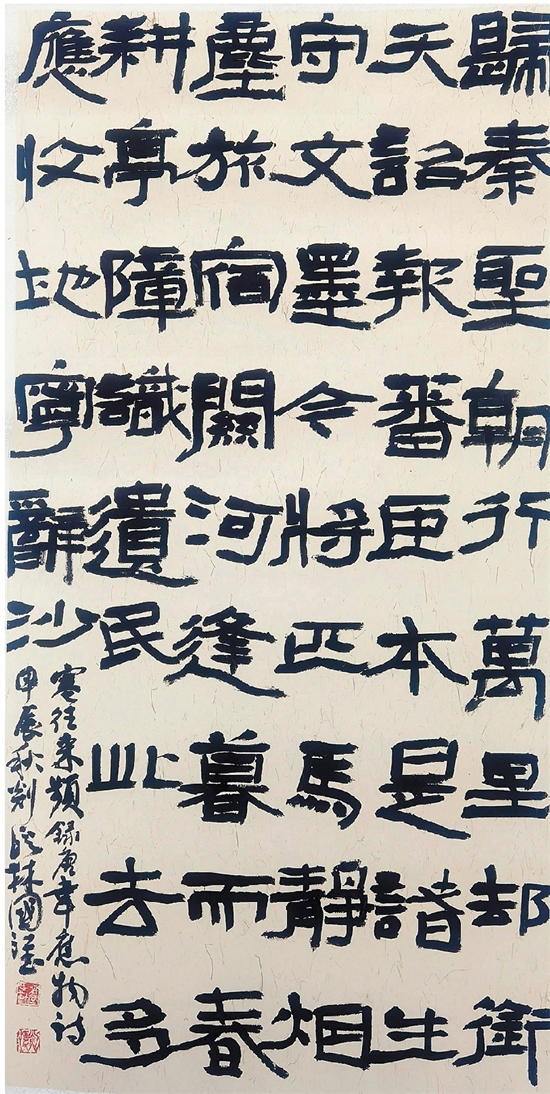 歸秦聖朝行萬里却銜
天詔報蕃臣本是諸生
守文墨令將匹馬靜烟
塵旅宿關河逢暮而春
耕亭障識遺民此去多
應收地寧辭沙
塞往来頻錄唐韋應物詩
甲辰秋剡林國